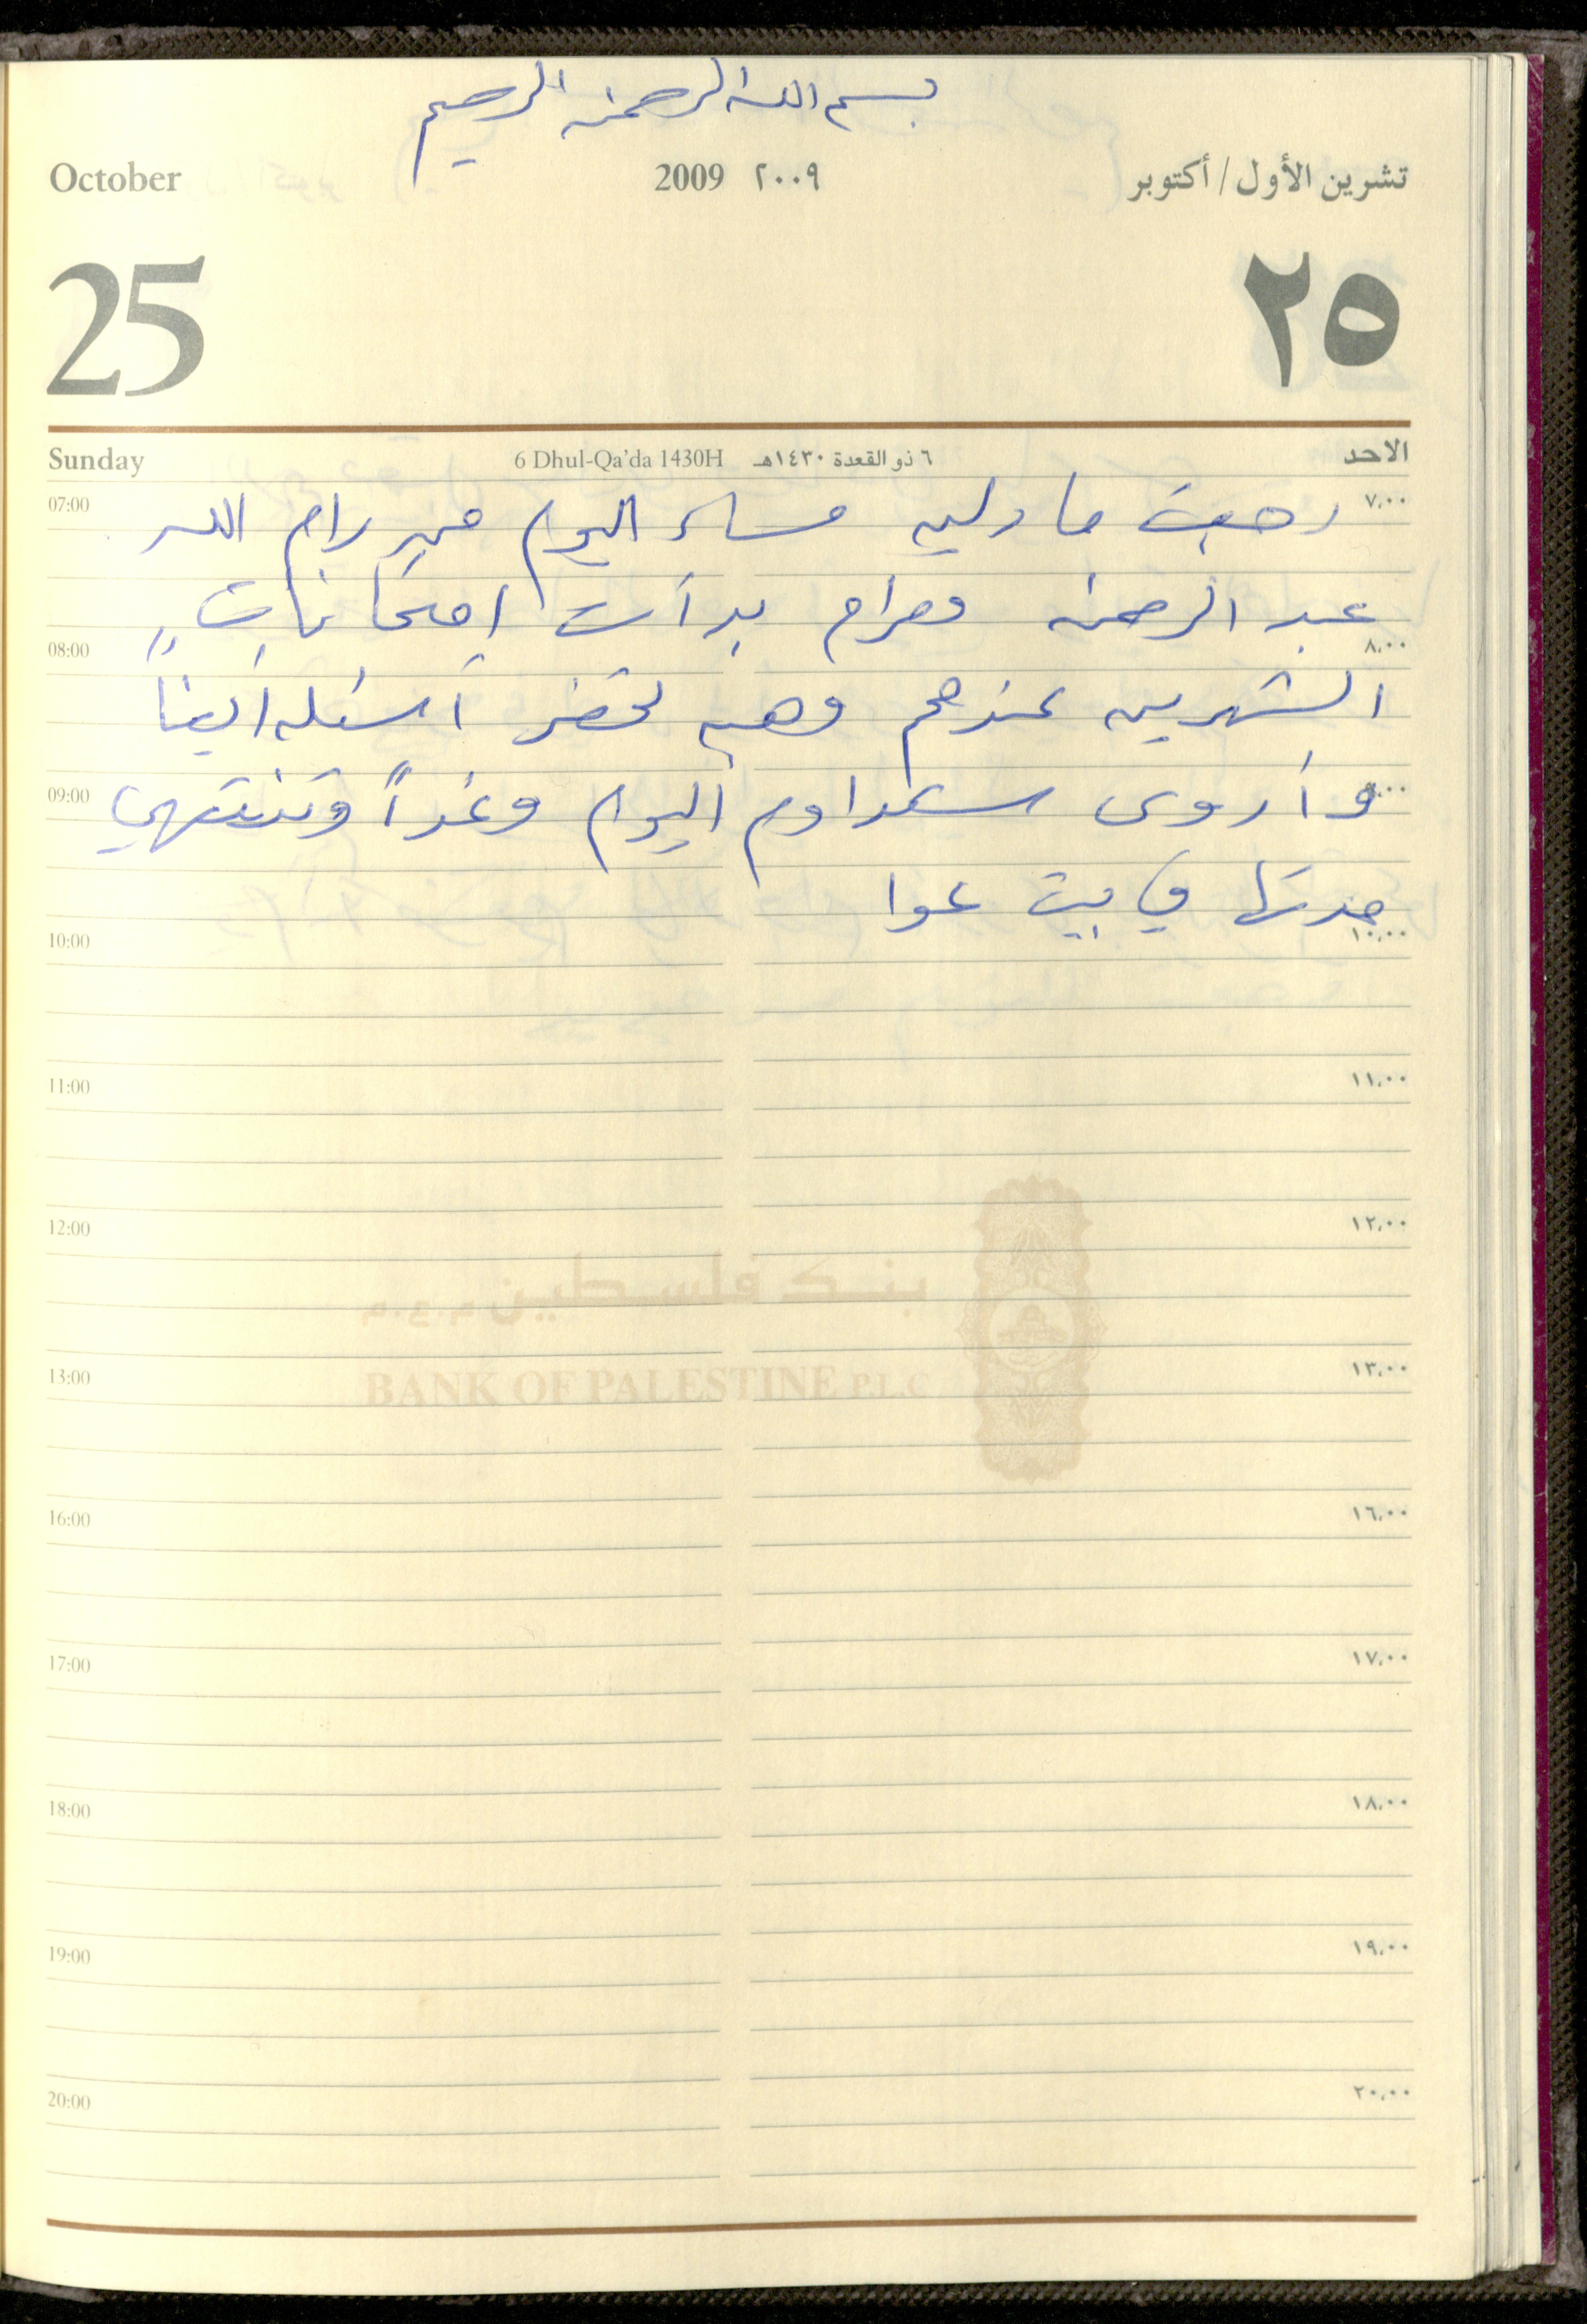 بسم الله الرحمن الرحيم
October 2009 ٢٠٠٩ تشرين الأول / أكتوبر
25 ٢٥
Sunday 6 Dhul-Qa'da 1430H ٦ ذو القعدة ١٤٣٠هـ الاحد
07:00 رجعت مادلين مساء اليوم من رام الله ٧,٠٠
عبد الرحمن ومرام بدأت امتحانات
08:00 ٨,٠٠
الشهرين عندهم وهي تحضر أسئلة أيضاً
09:00 وأروى ستداوم اليوم وغداً وتنتهي ٩,٠٠
مدتها في بيت عوا
10:00 ١٠,٠٠
11:00 ١١,٠٠
12:00 ١٢,٠٠
بنك فلسطين م.ع.م
13:00 ١٣,٠٠
BANK OF PALESTINE P.L.C
16:00 ١٦,٠٠
17:00 ١٧,٠٠
18:00 ١٨,٠٠
19:00 ١٩,٠٠
20:00 ٢٠,٠٠